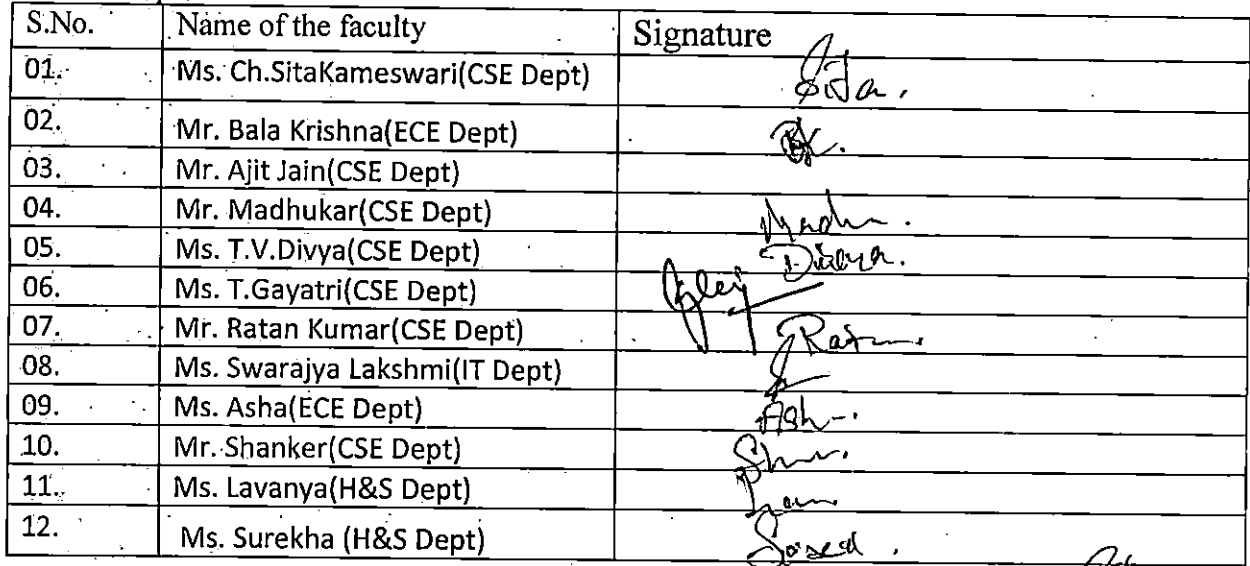 S.No. Name of the faculty Signature
01. Ms. Ch.SitaKameswari(CSE Dept) Sita.
02. Mr. Bala Krishna(ECE Dept) BK.
03. Mr. Ajit Jain(CSE Dept)
04. Mr. Madhukar(CSE Dept) Madhu.
05. Ms. T.V.Divya(CSE Dept) Divya.
06. Ms. T.Gayatri(CSE Dept)
07. Mr. Ratan Kumar(CSE Dept)
08. Ms. Swarajya Lakshmi(IT Dept)
09. Ms. Asha(ECE Dept)
10. Mr. Shanker(CSE Dept)
11. Ms. Lavanya(H&S Dept)
12. Ms. Surekha (H&S Dept)